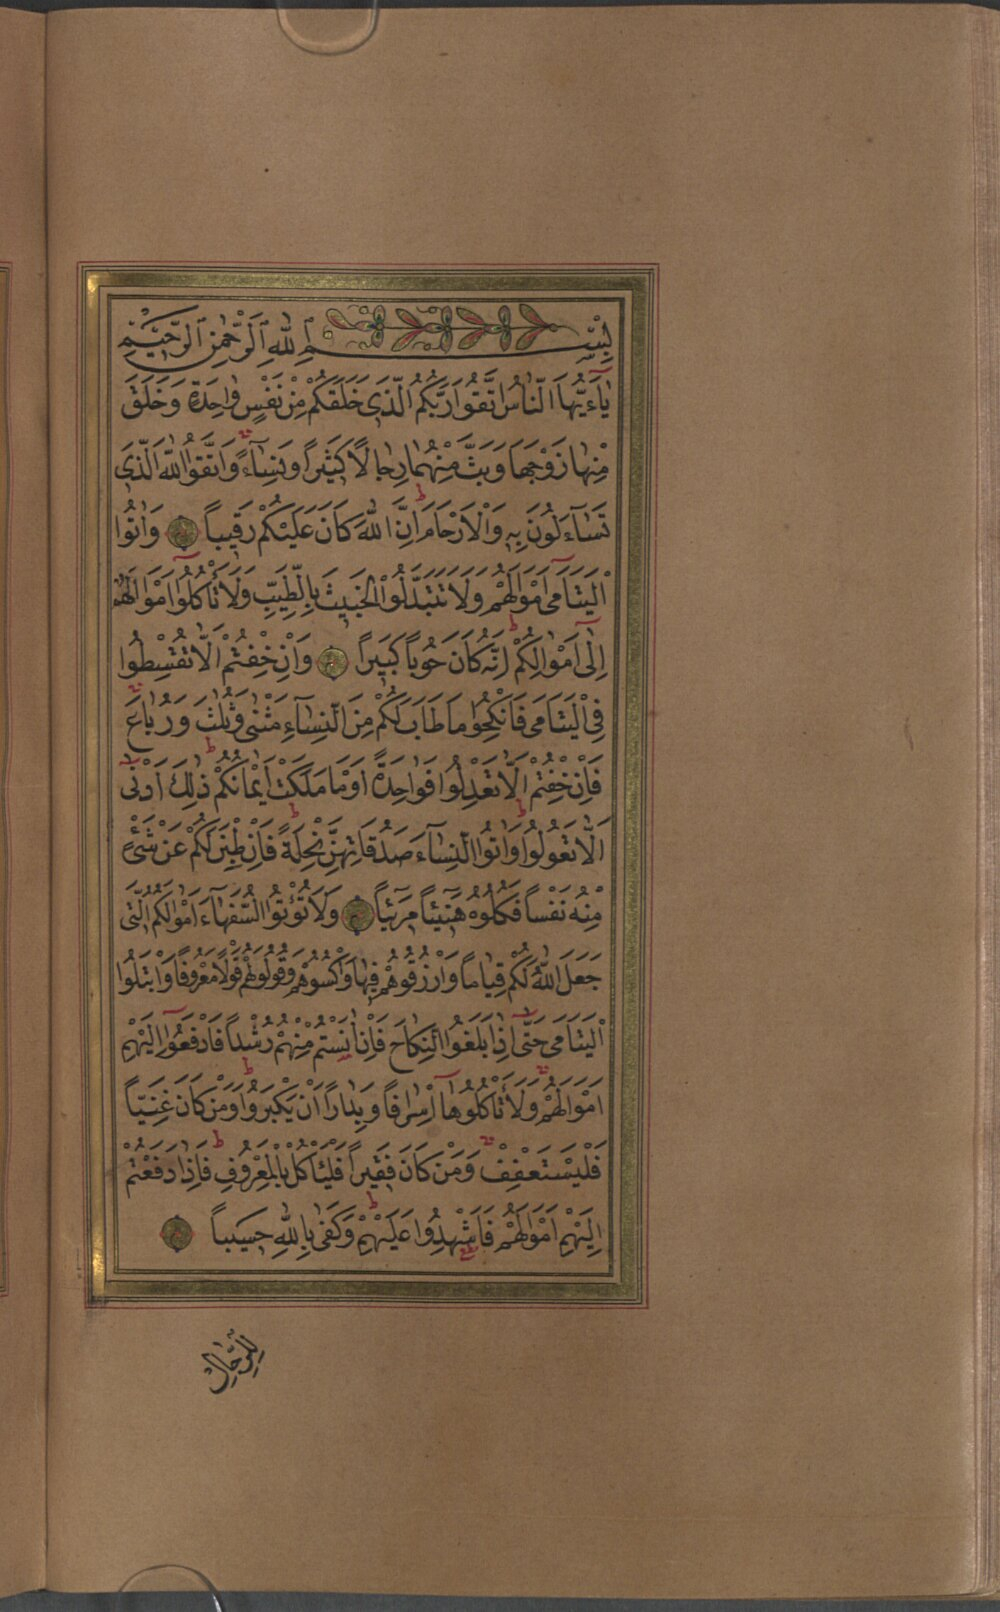 بِسْمِ اللهِ الرَّحْمٰنِ الرَّحِيمِ
يَاءَيُّهَا النَّاسُ اتَّقُوا رَبَّكُمُ الَّذِى خَلَقَكُمْ مِنْ نَفْسٍ وَاحِدَةٍ وَخَلَقَ
مِنْهَا زَوْجَهَا وَبَثَّ مِنْهُمَا رِجَالًا كَثِيرًا وَنِسَاءً وَاتَّقُوا اللهَ الَّذِى
تَسَاءَلُونَ بِهِ وَالْاَرْحَامَ اِنَّ اللهَ كَانَ عَلَيْكُمْ رَقِيبًا وَاٰتُوا
الْيَتَامٰى اَمْوَالَهُمْ وَلَا تَتَبَدَّلُوا الْخَبِيثَ بِالطَّيِّبِ وَلَا تَأْكُلُوا اَمْوَالَهُمْ
اِلٰى اَمْوَالِكُمْ اِنَّهُ كَانَ حُوبًا كَبِيرًا وَاِنْ خِفْتُمْ اَلَّا تُقْسِطُوا
فِى الْيَتَامٰى فَانْكِحُوا مَا طَابَ لَكُمْ مِنَ النِّسَاءِ مَثْنٰى وَثُلٰثَ وَرُبَاعَ
فَاِنْ خِفْتُمْ اَلَّا تَعْدِلُوا فَوَاحِدَةً اَوْ مَا مَلَكَتْ اَيْمَانُكُمْ ذٰلِكَ اَدْنٰى
اَلَّا تَعُولُوا وَاٰتُوا النِّسَاءَ صَدُقَاتِهِنَّ نِحْلَةً فَاِنْ طِبْنَ لَكُمْ عَنْ شَىْءٍ
مِنْهُ نَفْسًا فَكُلُوهُ هَنِيئًا مَرِيئًا وَلَا تُؤْتُوا السُّفَهَاءَ اَمْوَالَكُمُ الَّتِى
جَعَلَ اللهُ لَكُمْ قِيَامًا وَارْزُقُوهُمْ فِيهَا وَاكْسُوهُمْ وَقُولُوا لَهُمْ قَوْلًا مَعْرُوفًا وَابْتَلُوا
الْيَتَامٰى حَتّٰى اِذَا بَلَغُوا النِّكَاحَ فَاِنْ اٰنَسْتُمْ مِنْهُمْ رُشْدًا فَادْفَعُوا اِلَيْهِمْ
اَمْوَالَهُمْ وَلَا تَأْكُلُوهَا اِسْرَافًا وَبِدَارًا اَنْ يَكْبَرُوا وَمَنْ كَانَ غَنِيًّا
فَلْيَسْتَعْفِفْ وَمَنْ كَانَ فَقِيرًا فَلْيَأْكُلْ بِالْمَعْرُوفِ فَاِذَا دَفَعْتُمْ
اِلَيْهِمْ اَمْوَالَهُمْ فَاَشْهِدُوا عَلَيْهِمْ وَكَفٰى بِاللهِ حَسِيبًا
لِلرِّجَالِ